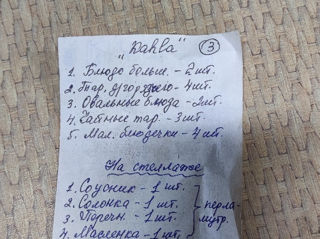 "Kahla" 3
1. Блюдо больш. - 2 шт.
2. Тар. - 4 шт.
3. Овальные блюда - 2 шт.
4. Чайные тар. - 3 шт.
5. Мал. блюдечки - 4 шт.
На стеллаже
1. Соусник - 1 шт.
2. Солонка - 1 шт. перла-
3. Перечн. - 1 шт. мутр.
4. Масленка - 1 шт.